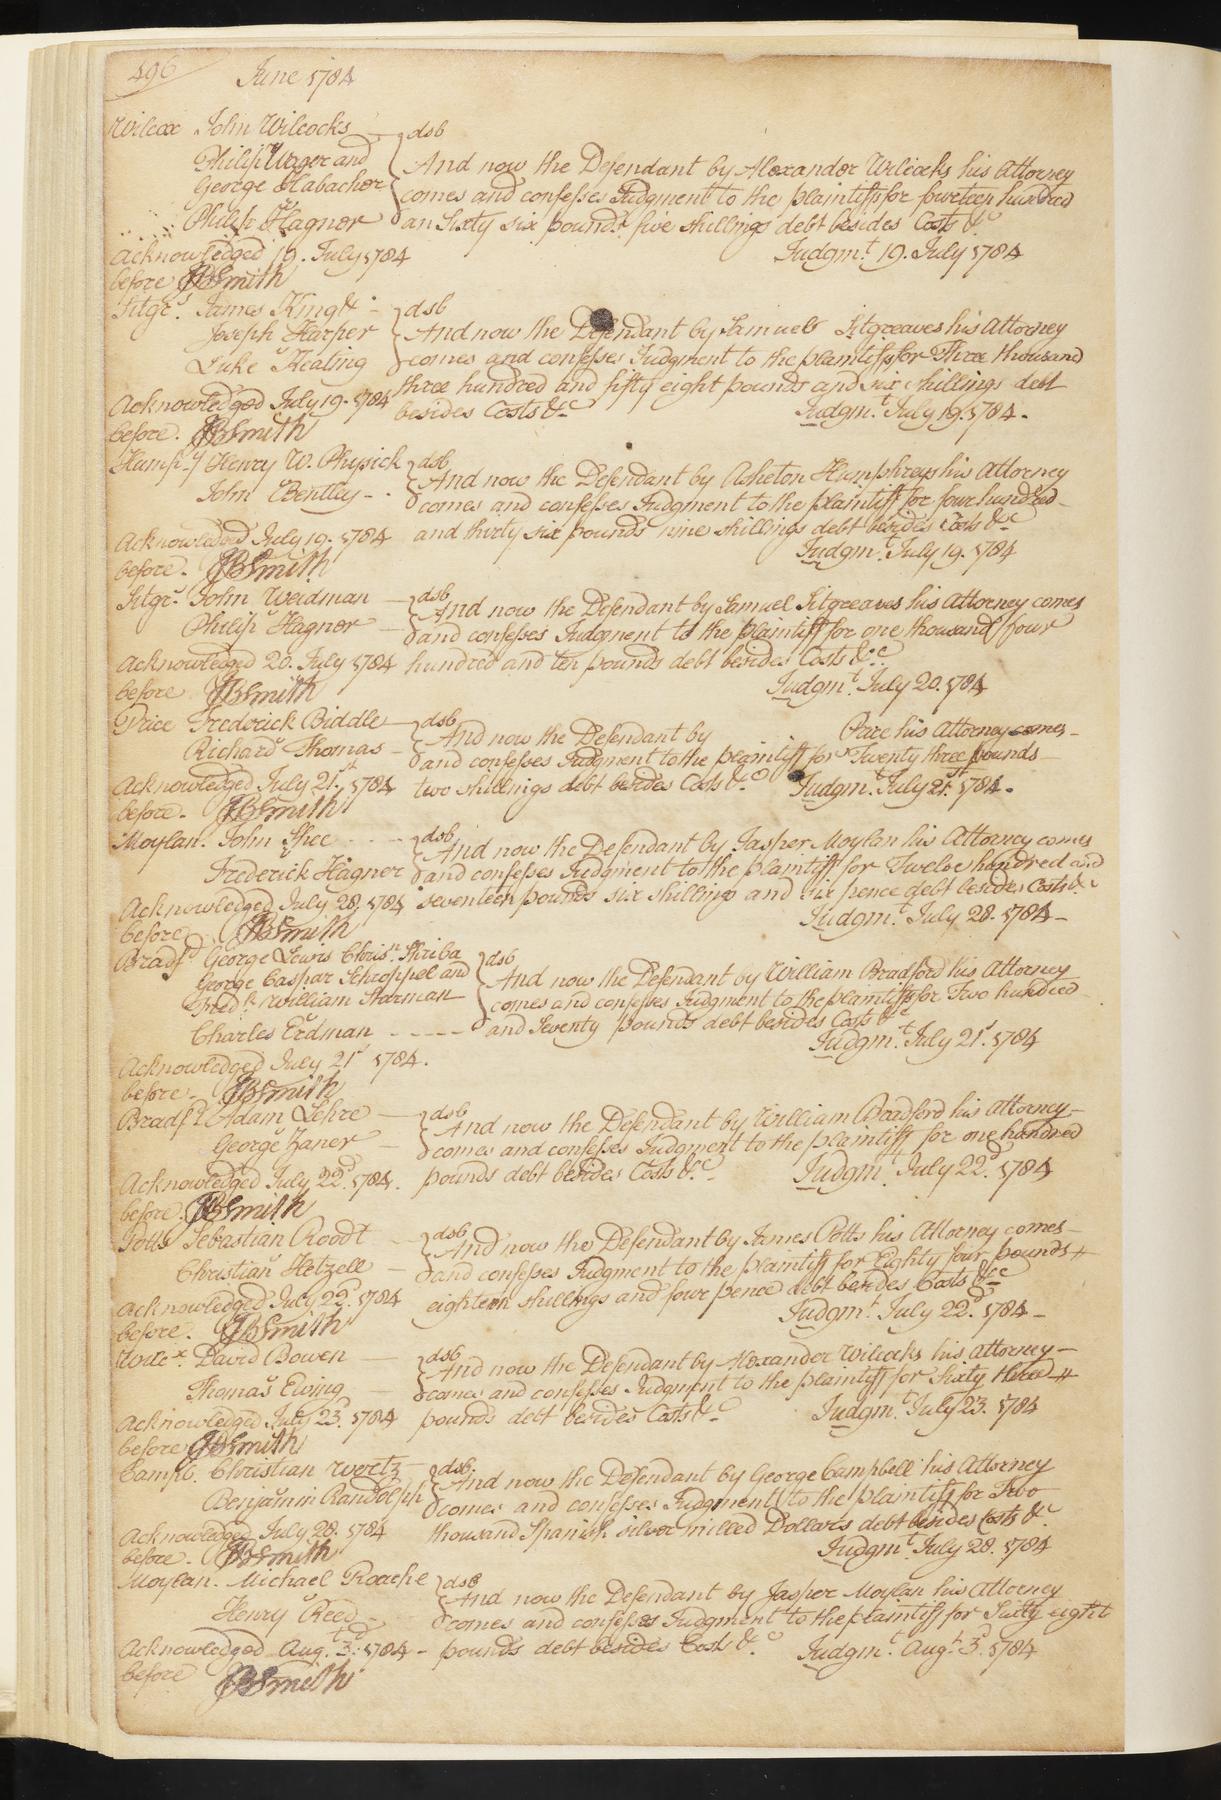 496
June 1784
Wilcox John Wilcocks dsb
Philip Wager and And now the Defendant by Alexander Wilcocks his Attorney
George Habacher comes and confesses Judgment to the plaintiffs for fourteen hundred
Philip Hagner an Sixty six pounds five shillings debt besides Costs &c
Acknowledged 19. July 1784 Judgmt. 19. July 1784
before JBSmith
Sitgrs. James King & dsb
Joseph Harper And now the Defendant by Samuel Sitgreaves his Attorney
v
Luke Kealing comes and confesses Judgment to the plaintiffs for Three thousand
three hundred and fifty eight pounds and six shillings debt
Acknowledged July 19. 1784 besides Costs &c Judgmt. July 19. 1784.
before. JBSmith
Humphy Henry W. Physick dsb
And now the Defendant by Asheton Humphreys his Attorney
John Bentley comes and confesses Judgment to the plaintiff for four hundred
Acknowledged July 19. 1784 and thirty six pounds nine shillings debt besides Costs &c
before. JBSmith Judgmt. July 19. 1784
Sitgr. John Weidman dsb
v And now the Defendant by Samuel Sitgreaves his Attorney comes
Philip Hagner and confesses Judgment to the plaintiff for one thousand four
Acknowledged 20. July 1784 hundred and ten pounds debt besides Costs &c.
before JBSmith Judgmt. July 20. 1784
Price Frederick Biddle dsb
v And now the Defendant by Price his Attorney comes
Richard Thomas and confesses Judgment to the plaintiff for Twenty three pounds
Acknowledged July 21st. 1784 two shillings debt besides Costs &c Judgmt. July 21st. 1784.
before. JBSmith
Moylan. John Shee dsb
v And now the Defendant by Jasper Moylan his Attorney comes
Frederick Hagner and confesses Judgment to the plaintiff for Twelve hundred and
Acknowledged July 28. 1784 seventeen pounds six shillings and six pence debt besides Costs &c
before JBSmith Judgmt. July 28. 1784
Bradfd George Lewis Chrisn. Shriba dsb
George Caspar Schroppel and And now the Defendant by William Bradford his Attorney
Fredk. William Starman comes and confesses Judgment to the plaintiffs for Two hundred
v
Charles Erdman and Seventy pounds debt besides Costs &c
Acknowledged July 21st 1784. Judgmt. July 21st. 1784
before. JBSmith
Bradfd Adam Lehre dsb
v And now the Defendant by William Bradford his Attorney
George Zaner comes and confesses Judgment to the plaintiff for one hundred
Acknowledged July 22d. 1784. pounds debt besides Costs &c. Judgmt. July 22d. 1784
before. JBSmith
Potts Sebastian Roodt dsb
v And now the Defendant by James Potts his Attorney comes
Christian Hetzell and confesses Judgment to the plaintiff for Eighty four pounds
Acknowledged July 22d. 1784 eighteen shillings and four pence debt besides Costs &c
before. JBSmith Judgmt. July 22d. 1784
Wilcx. David Bowen dsb
v And now the Defendant by Alexander Wilcocks his Attorney
Thomas Ewing comes and confesses Judgment to the plaintiff for Sixty three
Acknowledged July 23d. 1784 pounds debt besides Costs &c Judgmt. July 23. 1784
before JBSmith
Camp. Christian Wertz dsb.
v And now the Defendant by George Campbell his Attorney
Benjamin Randolph comes and confesses Judgment to the plaintiff for Two
Acknowledged July 28. 1784 thousand Spanish silver milled Dollars debt besides Costs &c.
before. JBSmith Judgmt. July 28. 1784
Moylan. Michael Roache dsb
v And now the Defendant by Jasper Moylan his Attorney
Henry Reed comes and confesses Judgment to the plaintiff for Sixty eight
Acknowledged Augt. 3d. 1784 pounds debt besides Costs &c. Judgmt. Augt. 3d. 1784
before JBSmith